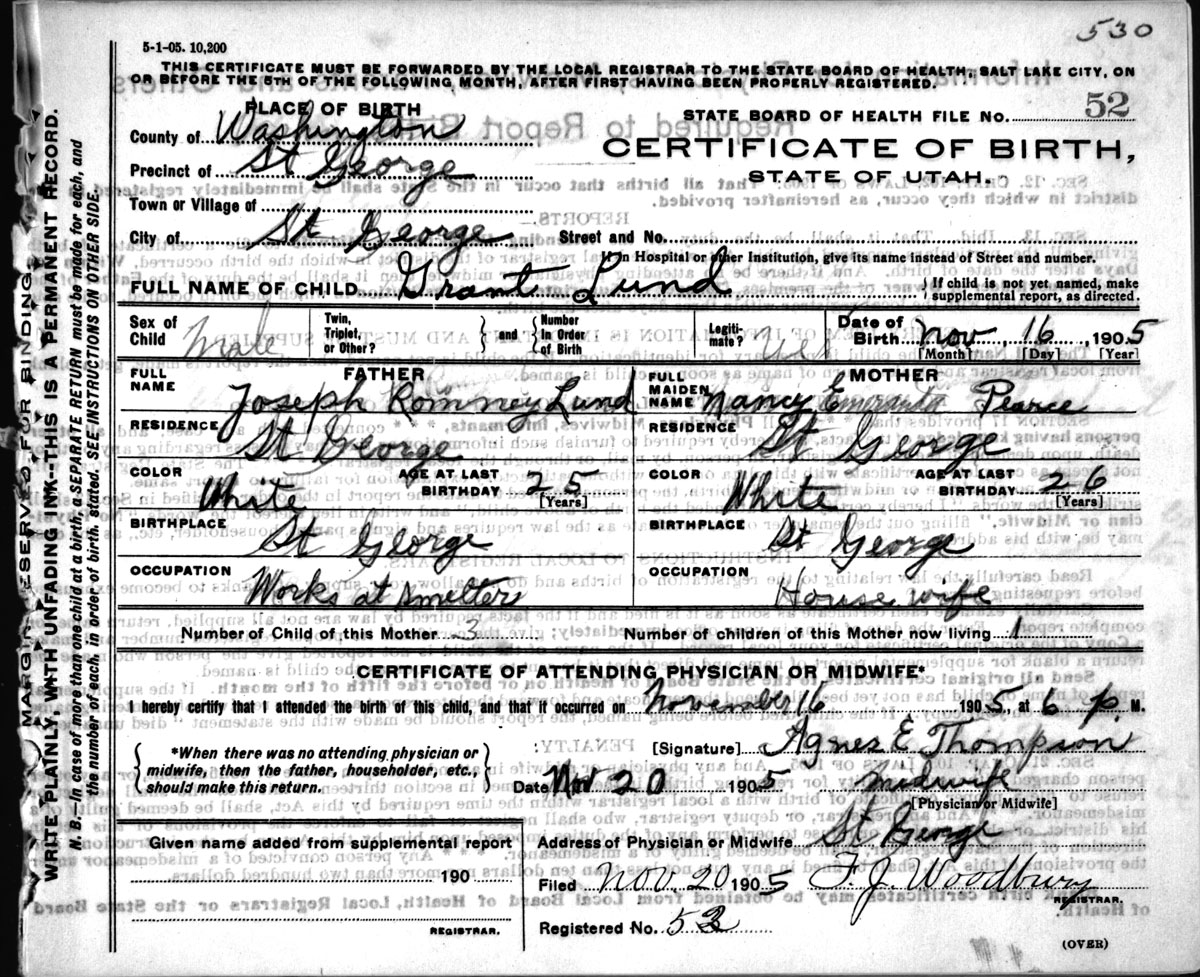 530
5-1-05. 10,200
THIS CERTIFICATE MUST BE FORWARDED BY THE LOCAL REGISTRAR TO THE STATE BOARD OF HEALTH, SALT LAKE CITY, ON
OR BEFORE THE 5TH OF THE FOLLOWING MONTH, AFTER FIRST HAVING BEEN PROPERLY REGISTERED.
PLACE OF BIRTH
STATE BOARD OF HEALTH FILE NO. 52
County of Washington
CERTIFICATE OF BIRTH,
Precinct of St George
STATE OF UTAH.
Town or Village of
City of St George Street and No.
If in Hospital or other Institution, give its name instead of Street and number.
FULL NAME OF CHILD Grant Lund { If child is not yet named, make supplemental report, as directed.
Sex of Child Male Twin, Triplet, or Other? } and { Number in Order of Birth Legitimate? Yes Date of Birth Nov 16, 1905
[Month] [Day] [Year]
FATHER MOTHER
FULL NAME Joseph Romney Lund FULL MAIDEN NAME Nancy Pearce
RESIDENCE St George RESIDENCE St George
COLOR White AGE AT LAST BIRTHDAY 25 [Years] COLOR White AGE AT LAST BIRTHDAY 26 [Years]
BIRTHPLACE St George BIRTHPLACE St George
OCCUPATION Works at smelter OCCUPATION House wife
Number of Child of this Mother 3 Number of children of this Mother now living 1
CERTIFICATE OF ATTENDING PHYSICIAN OR MIDWIFE*
I hereby certify that I attended the birth of this child, and that it occurred on November 16 1905, at 6 p. M.
{ *When there was no attending physician or midwife, then the father, householder, etc., should make this return. }
[Signature] Agnes E Thompson
Date Nov 20 1905 Midwife
[Physician or Midwife]
Given name added from supplemental report
190
REGISTRAR.
Address of Physician or Midwife St George
Filed Nov. 20 1905 F. J. Woodbury
REGISTRAR.
Registered No. 52
(OVER)
MARGIN RESERVED FOR BINDING
WRITE PLAINLY WITH UNFADING INK--THIS IS A PERMANENT RECORD.
N. B.—In case of more than one child at a birth, a SEPARATE RETURN must be made for each, and
the number of each, in order of birth, stated. SEE INSTRUCTIONS ON OTHER SIDE.